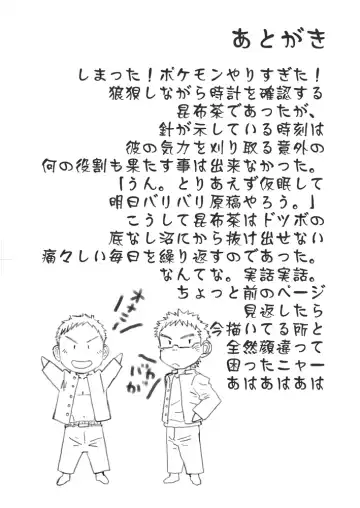 あとがき
しまった！ポケモンやりすぎた！
狼狽しながら時計を確認する
昆布茶であったが、
針が示している時刻は
彼の気力を刈り取る意外の
何の役割も果たす事は出来なかった。
「うん。とりあえず仮眠して
明日バリバリ原稿やろう。」
こうして昆布茶はドツボの
底なし沼にから抜け出せない
痛々しい毎日を繰り返すのであった。
なんてな。実話実話。
ちょっと前のページ
見返したら
今描いてる所と
全然顔違って
困ったニャー
あはあはあは
オキシ!
バカか!